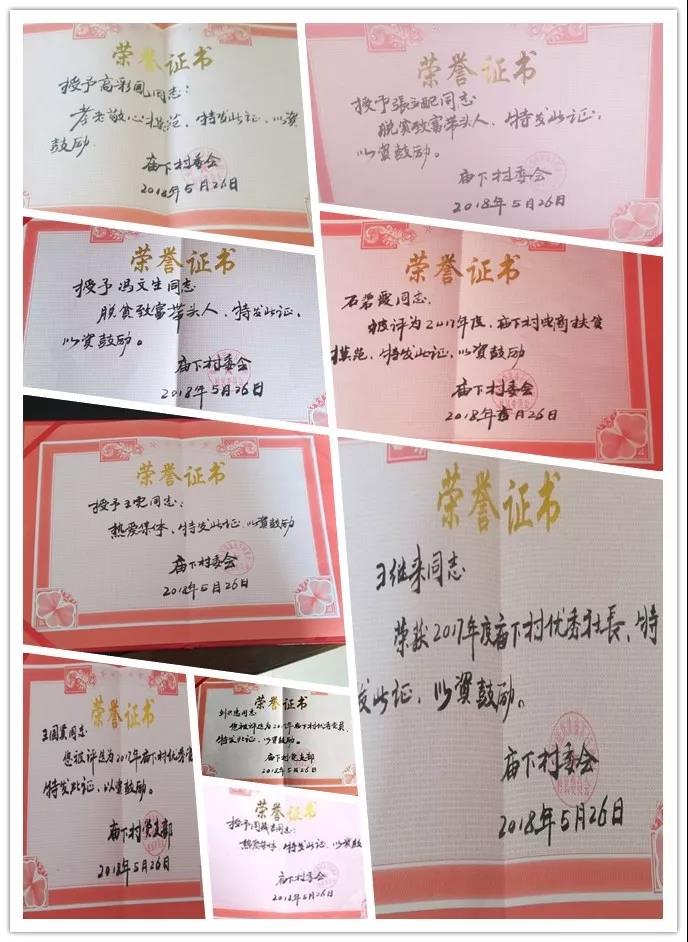 荣誉证书
授予高彩凤同志：
孝老敬心模范，特发此证，以资
鼓励
庙下村委会
2018年5月26日
荣誉证书
授予張 同志
脱贫致富带头人，特发此证，
以资鼓励。
庙下村委会
2018年5月26日
荣誉证书
授予冯文生同志
脱贫致富带头人，特发此证，
以资鼓励。
庙下村委会
2018年5月26日
荣誉证书
石碧霞同志，
被评为2017年度，庙下村电商扶贫
模范，特发此证，以资鼓励
庙下村委会
2018年5月26日
荣誉证书
授予王 同志：
热爱集体，特发此证，以资鼓励
庙下村委会
2018年5月26日
荣誉证书
王继来同志
荣获2017年度庙下村优秀社長，特
发此证，以资鼓励。
庙下村委会
2018年5月26日
荣誉证书
王国 同志
您被评选为2017年庙下村优秀党
特发此证，以资鼓励。
庙下村党支部
2018年5月26日
荣誉证书
刘 同志
您被评选为2017年庙下村优秀党员，
特发此证，以资鼓励。
庙下村党支部
2018年5月26日
荣誉证书
授予 同志：
热爱集体，特发此证，以资鼓励
庙下村委会
2018年5月26日